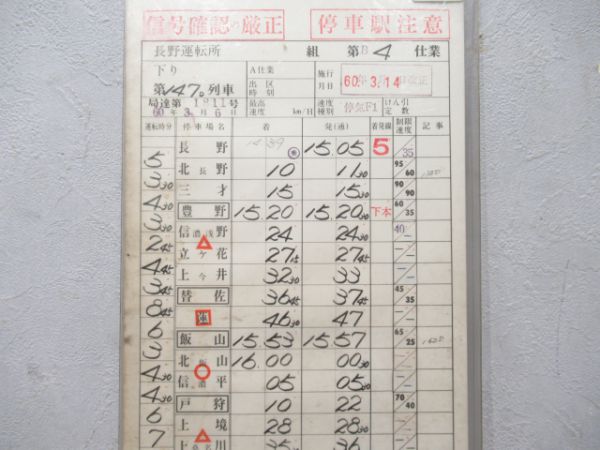 信号確認の厳正 停車駅注意
長野運転所 組 第B4仕業
下り A仕業 施行月日 60.3.14 改正
第147D列車 出区時刻
局達第1011号 最高速度 km/H 速度種別 停気F1 けん引定数
60年3月6日
運転時分 停車場名 着 発(通) 着発線 制限速度 記事
長野 15.05 5 35
5
北長野 10 11 30 95/60
3 30
三才 15 15 30 90/90
4 30
豊野 15.20 15.20 30 下本 60/35
3 30
信濃浅野 24 24 30 40
2 45
立ヶ花 27 15 27 45
4 45
上今井 32 30 33
3 45
替佐 36 45 37 45
8 45
蓮 46 30 47
6
飯山 15.53 15.57 65/25
3
北飯山 16.00 00 30
4 30
信濃平 05 05 30
4 30
戸狩 10 22 70/40
6
上境 28 28 30
7
上桑名川 35 36